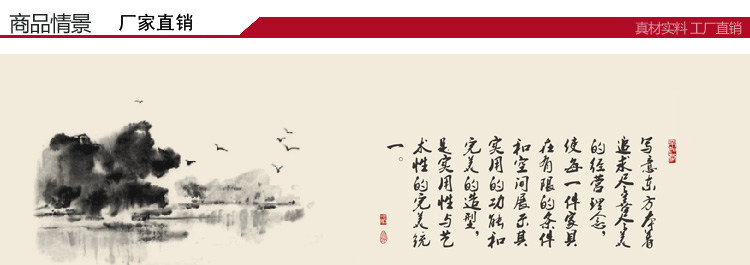 商品情景 厂家直销
真材实料 工厂直销
写意东方本着
追求尽善尽美
的经营理念，
使每一件家具
在有限的条件
和空间展示其
实用的功能和
完美的造型，
是实用性与艺
术性的完美统
一。